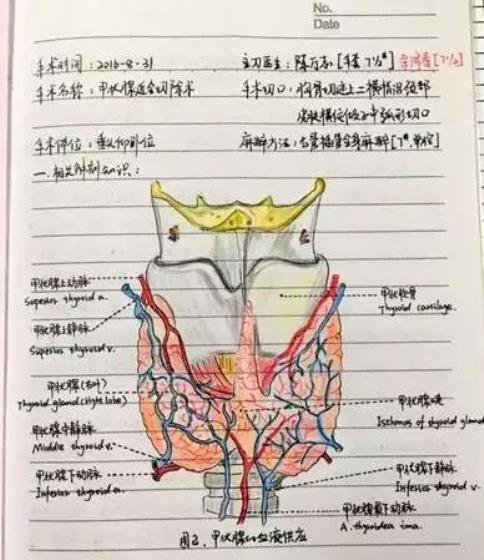 No.
Date
手术时间：2016-8-31 主刀医生：陈万志 [手套 7½#]
手术名称：甲状腺近全切除术 手术切口：胸骨切迹上二横指沿颈部
皮肤横纹做弧形切口
手术体位：垂头仰卧位 麻醉方法：气管插管全身麻醉 [7#,单腔]
一.相关解剖知识：
甲状腺上动脉
Superior thyroid a.
甲状腺上静脉
Superior thyroid v.
甲状软骨
Thyroid cartilage.
甲状腺(右叶)
Thyroid gland (right lobe)
甲状腺峡
Isthmus of thyroid gland
甲状腺中静脉
Middle thyroid v.
甲状腺下动脉
Inferior thyroid a.
甲状腺下静脉
Inferior thyroid v.
甲状腺最下动脉
A. thyroidea ima.
图2.甲状腺的血液供应